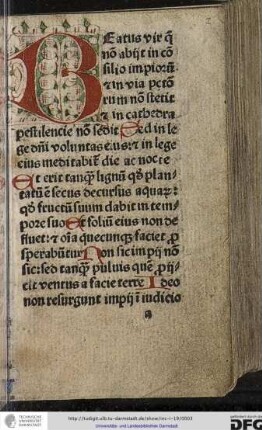 Beatus vir q̄
nō abijt in cō
silio impiorū
⁊ in via pctōꝝ
rum nō stetit
⁊ in cathedra
pestilencie nō sedit Sed in le
ge dn̄i voluntas eius ⁊ in lege
eius meditabit̄ die ac nocte
Et erit tanqȝ lignū qd̓ plan
tatū ē secus decursus aquaꝝ:
qd̓ fructū suum dabit in tem
pore suo Et foliū eius non de
fluet: ⁊ oīa quecunqȝ faciet ꝓ
sperabūtur Non sic impij nō
sic: sed tanqȝ puluis quē ꝓij
cit ventus a facie terre Ideo
non resurgunt impij ī iudicio
a
TECHNISCHE
UNIVERSITÄT
DARMSTADT
http://tudigit.ulb.tu-darmstadt.de/show/inc-i-19/0001
Universitäts- und Landesbibliothek Darmstadt
gefördert durch die
DFG